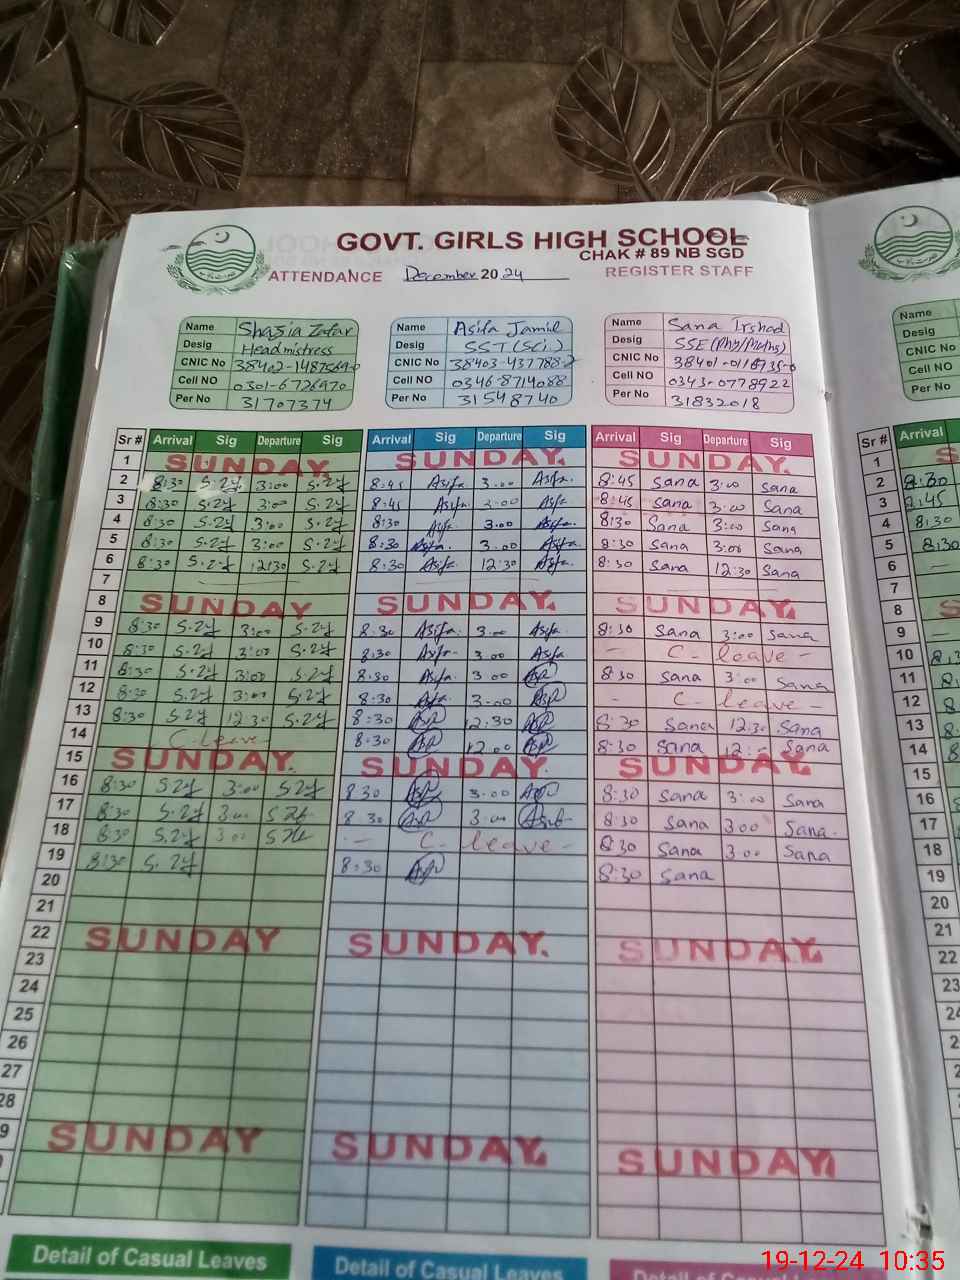 GOVT. GIRLS HIGH SCHOOL
CHAK # 89 NB SGD
ATTENDANCE December 2024 REGISTER STAFF
Name Shazia Zafar Name Asifa Jamil Name Sana Irshad Name
Desig Headmistress Desig SST (Sci.) Desig SSE (Phy/Maths) Desig
CNIC No CNIC No 38403-4377788-2 CNIC No CNIC No
Cell NO 0301-6726970 Cell NO 0346-8714088 Cell NO 0343-0778922 Cell
Per No 31707374 Per No 31548740 Per No 31832018 Per No
Sr # Arrival Sig Departure Sig Arrival Sig Departure Sig Arrival Sig Departure Sig Sr # Arrival
1 SUNDAY. SUNDAY. SUNDAY. 1
2 8:30 S.Zf 3:00 S.Zf 8:45 Asifa 3.00 Asifa. 8:45 Sana 3:00 Sana 2 8:30
3 8:30 S.Zf 3:00 S.Zf 8:45 Asifa 3:00 Asifa 8:45 Sana 3:00 Sana 3 8:45
4 8:30 S.Zf 3:00 S.Zf 8:30 Asifa 3.00 Asifa 8:30 Sana 3:00 Sana 4 8:30
5 8:30 S.Zf 3:00 S.Zf 8:30 Asifa. 3.00 Asifa. 8:30 Sana 3:00 Sana 5 8:30
6 8:30 S.Zf 12:30 S.Zf 8:30 Asifa 12:30 Asifa. 8:30 Sana 12:30 Sana 6
7 7
8 SUNDAY SUNDAY. SUNDAY. 8
9 8:30 S.Zf 3:00 S.Zf 8:30 Asifa. 3.00 Asifa. 8:30 Sana 3:00 Sana 9 —
10 8:30 S.Zf 3:00 S.Zf 8:30 Asifa 3.00 Asifa — C- leave - 10
11 8:30 S.Zf 3:00 S.Zf 8:30 Asifa 3.00 8:30 Sana 3:00 Sana 11
12 8:30 S.Zf 3:00 S.Zf 8:30 Asifa 3.00 - C- leave - 12
13 8:30 S.Zf 12:30 S.Zf 8:30 12:30 8:30 Sana 12:30 Sana 13
14 C-leave 8:30 12.00 8:30 Sana Sana 14
15 SUNDAY. SUNDAY. SUNDAY. 15
16 8:30 S.Zf 3:00 S.Zf 8:30 3.00 8:30 Sana 3:00 Sana 16
17 8:30 S.Zf 3:00 8:30 3:00 8:30 Sana 3:00 Sana. 17
18 8:30 S.Zf 3:00 — C- leave - 8:30 Sana 3:00 Sana 18
19 8:30 S.Zf 8:30 8:30 Sana 19
20 20
21 21
22 SUNDAY SUNDAY. SUNDAY. 22
23 23
24
25
26
27
28
SUNDAY SUNDAY. SUNDAY
Detail of Casual Leaves Detail of Casual Leaves
19-12-24 10:35